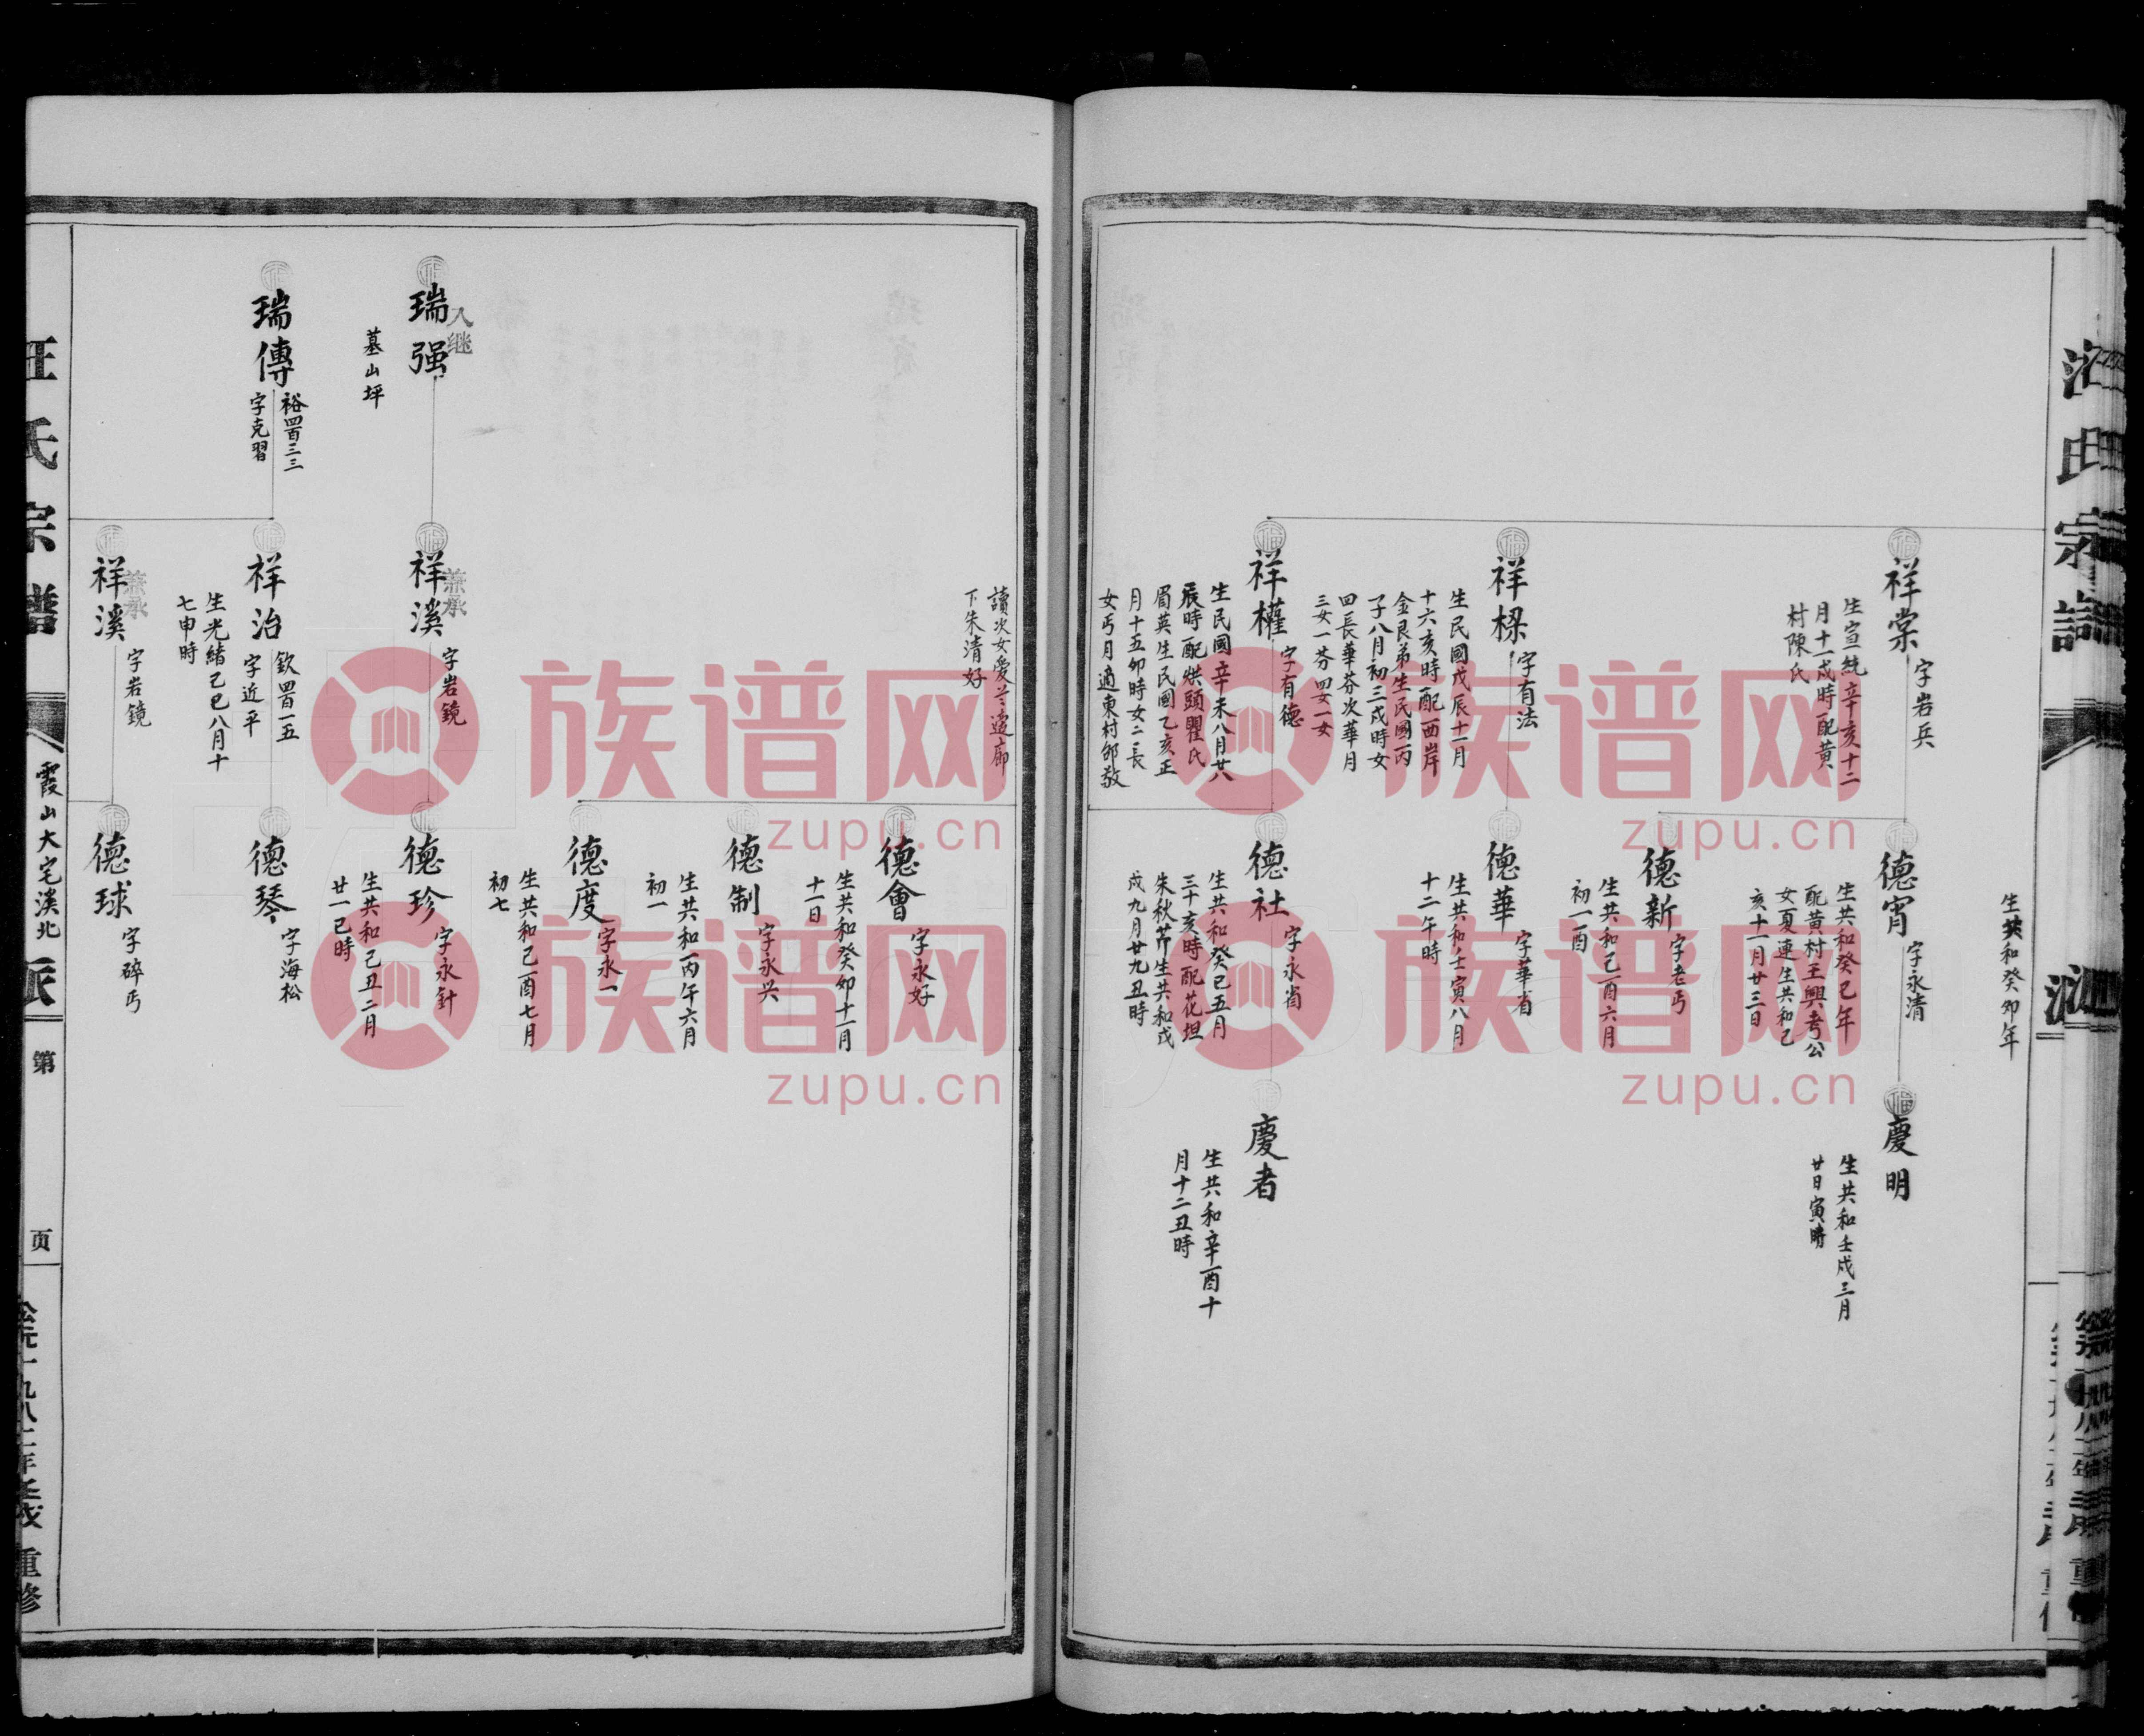 汪氏宗譜
生共和癸卯年
祥棠
字岩兵
生宣統辛亥十二
月十一戌時配黄
村陳氏
德宵
字永清
生共和癸巳年
配黄村王興考公
女夏連生共和己
亥十一月廿三日
慶明
生共和壬戌三月
廿日寅時
德新
字老丐
生共和己酉六月
初一酉
祥樑
字有法
生民國戊辰十一月
十六亥時配西岸
金艮弟生民國丙
子八月初三戌時女
四長華芬次華月
三女一芬四女一女
德華
字華省
生共和壬寅八月
十二午時
祥權
字有德
生民國辛未八月廿八
辰時配烘頭瞿氏
眉英生民國乙亥正
月十五卯時女二長
女丐月適東村邵敎
德社
字永省
生共和癸巳五月
三十亥時配花坦
朱秋芹生共和戊
戌九月廿九丑時
慶者
生共和辛酉十
月十二丑時
讀次女愛兰邊廊
下朱清好
德會
字永好
生共和癸卯十一月
十一日
德制
字永兴
生共和丙午六月
初一
德度
字永一
生共和己酉七月
初七
瑞强
入继
墓山坪
祥溪
兼承
字岩鏡
德珍
字永針
生共和己丑二月
廿一巳時
瑞傳
裕四百三三
字克習
祥治
欽四百一五
字近平
生光緒乙巳八月十
七申時
德琴
字海松
祥溪
兼承
字岩鏡
德球
字碎丐
汪氏宗譜
霞山大宅溪北
派
第
页
公元一九八二年壬戌
重修
族谱网
zupu.cn
族谱网
zupu.cn
族谱网
zupu.cn
族谱网
zupu.cn